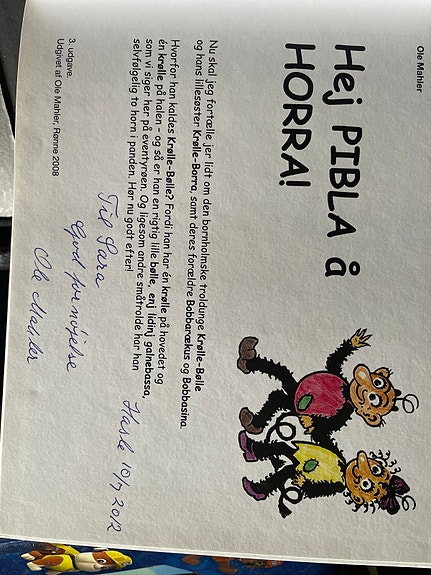 Ole Mahler
Hej PIBLA å
HORRA!
Nu skal jeg fortælle jer lidt om den bornholmske troldunge Krølle-Bølle
og hans lillesøster Krølle-Borra, samt deres forældre Bobbarækus og Bobbasina.
Hvorfor han kaldes Krølle-Bølle? Fordi han har én krølle på hovedet og
én krølle på halen - og så er han en rigtig lille bølle, enj lidinj galnebassa,
som vi siger her på eventyrøen. Og ligesom andre småtrolde har han
selvfølgelig to horn i panden. Hør nu godt efter!
Hasle 10/7 2012
Til Sara
God fornøjelse
Ole Mahler
3. udgave.
Udgivet af Ole Mahler, Rønne 2008